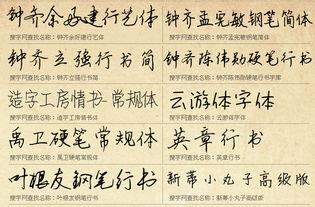 钟齐余好建行艺体
搜字网查找名称：钟齐余好建行艺体
钟齐孟宪敏钢笔简体
搜字网查找名称：钟齐孟宪敏钢笔简体
钟齐立强行书简
搜字网查找名称：钟齐立强行书简
钟齐陈伟勋硬笔行书
搜字网查找名称：钟齐陈伟勋硬笔行书字库
造字工房情书-常规体
搜字网查找名称：造字工房情书 常规体
云游体字体
搜字网查找名称：云游体字体
禹卫硬笔常规体
搜字网查找名称：禹卫硬笔常规体
英章行书
搜字网查找名称：英章行书
叶根友钢笔行书
搜字网查找名称：叶根友钢笔行书
新蒂小丸子高级版
搜字网查找名称：新蒂小丸子高级版